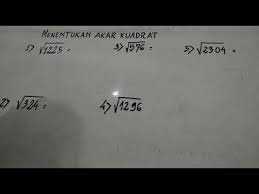 MENENTUKAN AKAR KUADRAT
1) √1225 =
3) √576 =
5) √2304 =
2) √324 =
4) √1296